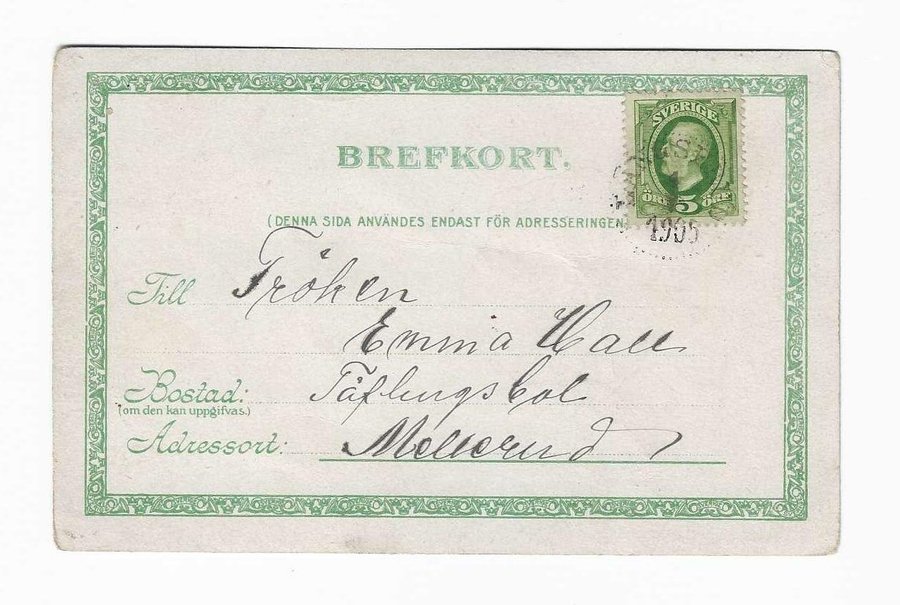 BREFKORT.
SVERIGE
ÖRE 5 ÖRE
1905
(DENNA SIDA ANVÄNDES ENDAST FÖR ADRESSERINGEN
Till Fröken
Emma Hall
Bostad:
(om den kan uppgifvas.)
Adressort: Mellerud